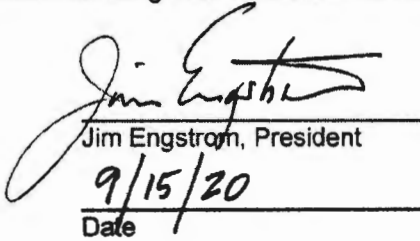 Jim Engstrom
Jim Engstrom, President
9/15/20
Date